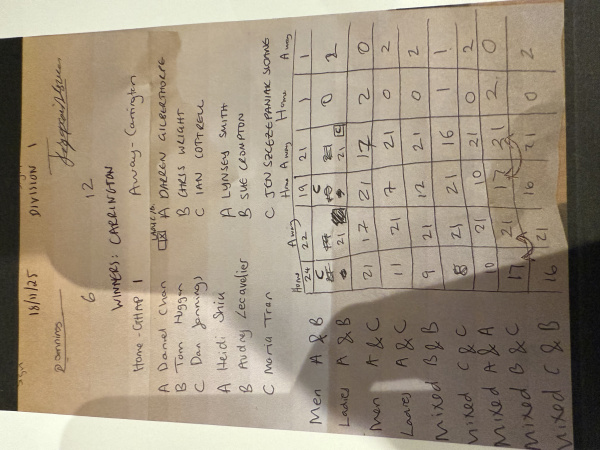 18/11/25 DIVISION 1
6 12
WINNERS: CARRINGTON
Home - CHAP 1 Away - Carrington
A Daniel Chan A DARREN GILBERTHORPE
B Tom Huggan B CHRIS WRIGHT
C Dan Jennings C IAN COTTRELL
A Heidi Shiu A LYNSEY SMITH
B Audrey Lecavalier B SUE CROMPTON
C Maria Tran C JEN SZCZEPANIAK SLOANE
Home Away Home Away Home Away
Men A & B 24 22 19 21 1 1
Ladies A & B 21 21 0 2
Men A & C 21 17 21 17 2 0
Ladies A & C 11 21 7 21 0 2
Mixed B & B 9 21 12 21 0 2
Mixed C & C 8 21 21 16 1 1
Mixed A & A 10 21 10 21 0 2
Mixed B & C 17 21 17 21 2 0
Mixed C & B 16 21 16 21 0 2